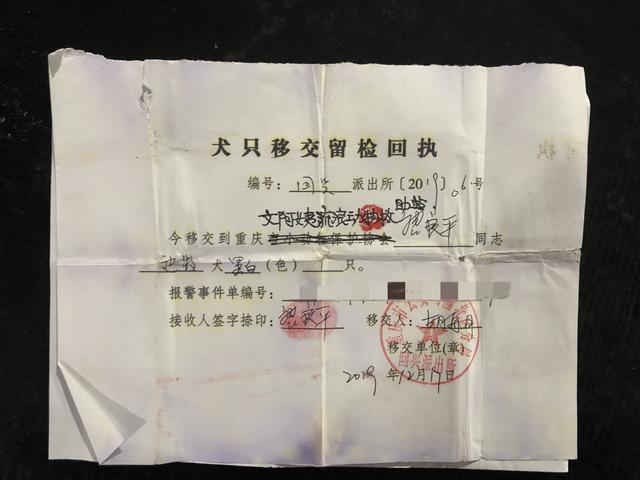 犬只移交留检回执
编号：回兴派出所〔2019〕06号
文阿姨流浪动物救助站
今移交到重庆市小动物保护协会 张良平 同志
犬黑白（色）只。
报警事件单编号：
接收人签字捺印：张良平 移交人：
移交单位（章）
回兴派出所
2019年12月17日